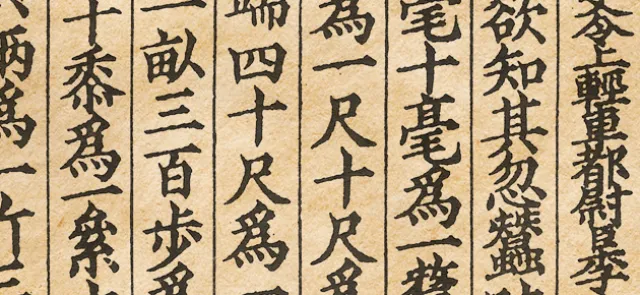 令上輕車都尉臣李
欲知其忽蠶
毫十毫爲一
爲一尺十尺爲
端四十尺爲
一畝三百步爲
十黍爲一絫
爲一